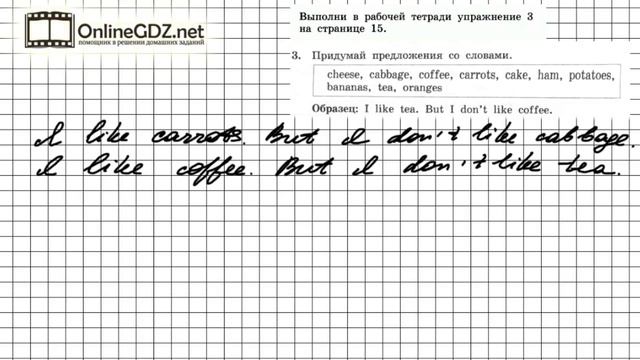 OnlineGDZ.net
помощник в решении домашних заданий
Выполни в рабочей тетради упражнение 3
на странице 15.
3. Придумай предложения со словами.
cheese, cabbage, coffee, carrots, cake, ham, potatoes,
bananas, tea, oranges
Образец: I like tea. But I don't like coffee.
I like carrots. But I don't like cabbage.
I like coffee. But I don't like tea.